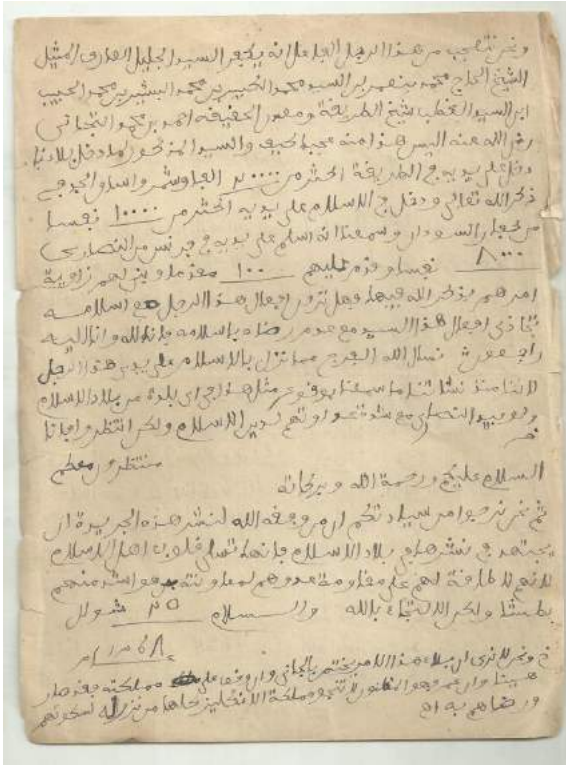 ونحن نتعجب من هذا الرجل الجاعل انه يكفر السيد الجليل العارف المثيل
الشيخ الحاج محمد بن عمر بن السيد محمد الكبير بن محمد البشير بن محمد الحبيب
ابن السيد القطب شيخ الطريقة ومعدن الحقيقة احمد بن محمد التجاني
رضي الله عنه اليس هذا منه عجبا كيف والسيد المذكور لما دخل بلادنا
دخل على يديه في الطريقة اكثر من ٢٠٠٠٠ الفا وشمر واسلو الجد في
ذكر الله تعالى ودخل في الاسلام على يديه اكثر من ١٠٠٠٠ نفسا
من كفار السودان وسمعنا انه اسلم على يديه في فرنس من النصارى
٨٠٠٠ نفسا وقدم عليهم ١٠٠ مقدما وبنى لهم زاوية
امرهم بذكر الله فيها وهل ترون افعال هذا الرجل مع اسلامه
تحاذى افعال هذا السيد مع عدم رضاه باسلامه فانا لله وانا اليه
راجعون نسال الله الفرج مما نزل بالاسلام على يدي هذا الرجل
لاننا منذ نشاتنا ما سمعنا بوقوع مثل هذا في اي بلدة من بلاد الاسلام
ولو بيد النصارى مع شدة عداوتهم لدين الاسلام ولكن انتظروا فانا
منتظرون معكم
السلام عليكم ورحمة الله وبركاته
ثم نحن نرجوا من سيادتكم ان من وفقه الله لنشر هذه الجريدة ان
يجتهد في نشرها في بلاد الاسلام فانها تسلي قلوب اهل الاسلام
لانهم لا طاقة لهم على مقاومة عدوهم لمعاونته بمن هو اشد منهم
بطشا ولكن الالتجاء بالله والسلام ٢٥ شوال
ونحن لا نرى ان بلاء هذا الامر يختص بالجاني وان وقع على مملكته فقد صار
هينا وان عم فهو الطاعون لا تنجو مملكة الانكليز حاها من نزوله لسكوتهم
ورضاهم به اه